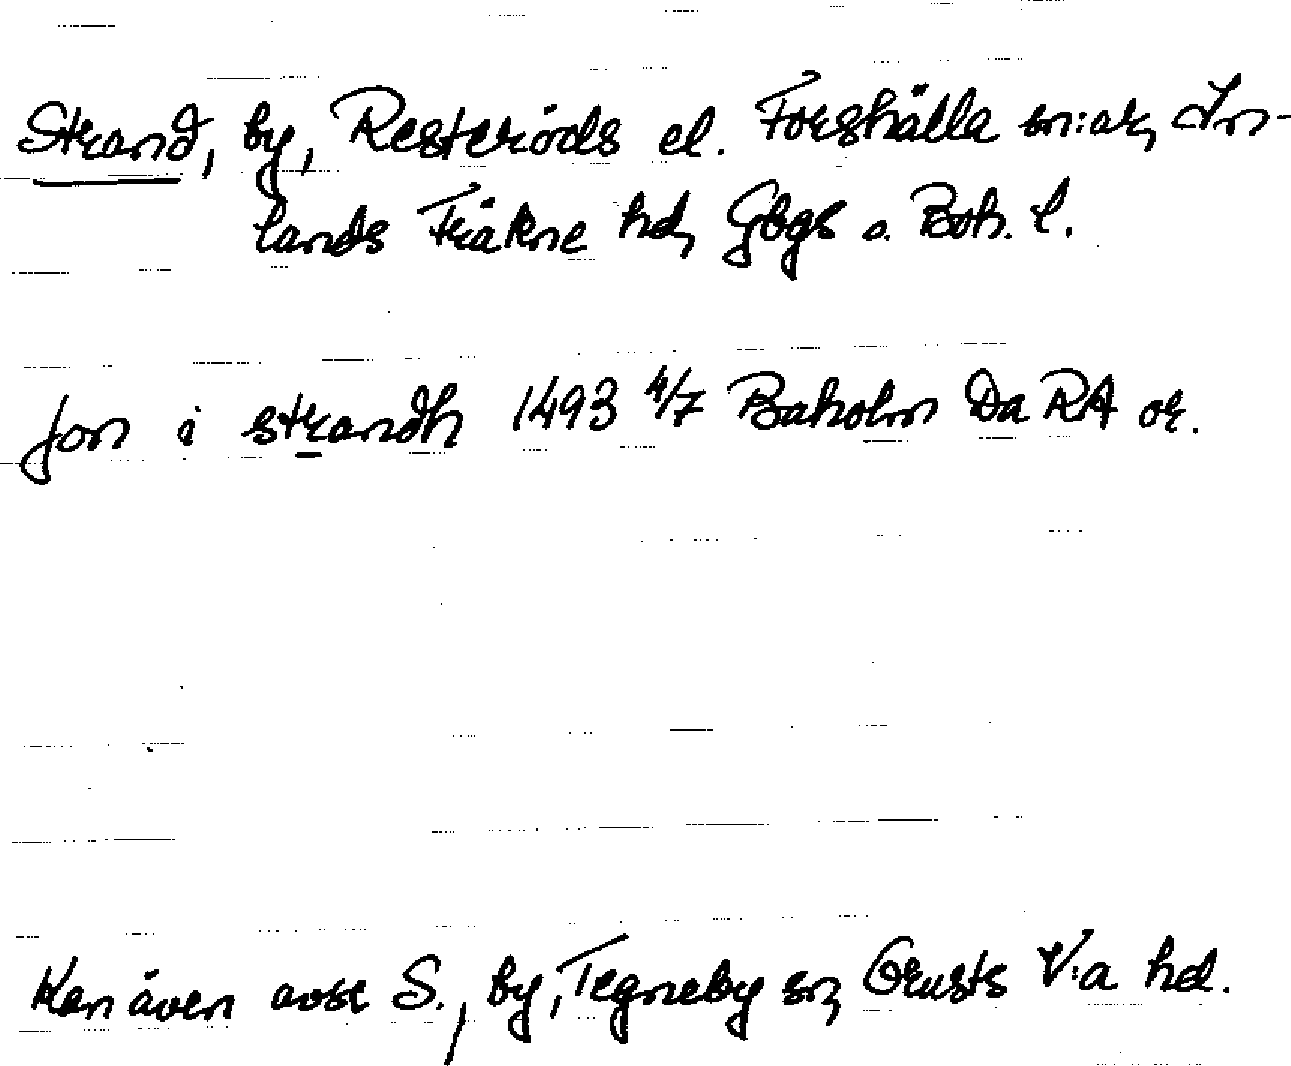 Strand, by, Resteröds el. Forshälla sn:ar, In-
lands Fräkne hd, Gbgs o. Boh. l.
jon i strandh 1493 4/7 Baholm Da RA or.
Kan även avse S., by, Tegneby sn, Orusts V:a hd.